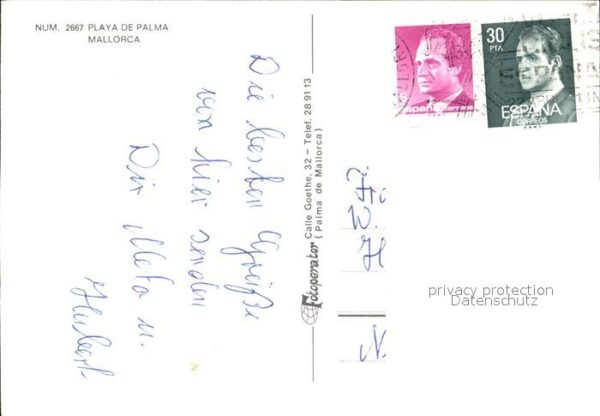 NUM. 2667 PLAYA DE PALMA
MALLORCA
Die besten Grüße
von hier senden
Dir Meta u.
Hubert
Fotoperator Calle Goethe, 32 - Telef. 28 91 13
(Palma de Mallorca)
ESPAÑA CORREOS
30
PTA
ESPAÑA
CORREOS
privacy protection
Datenschutz